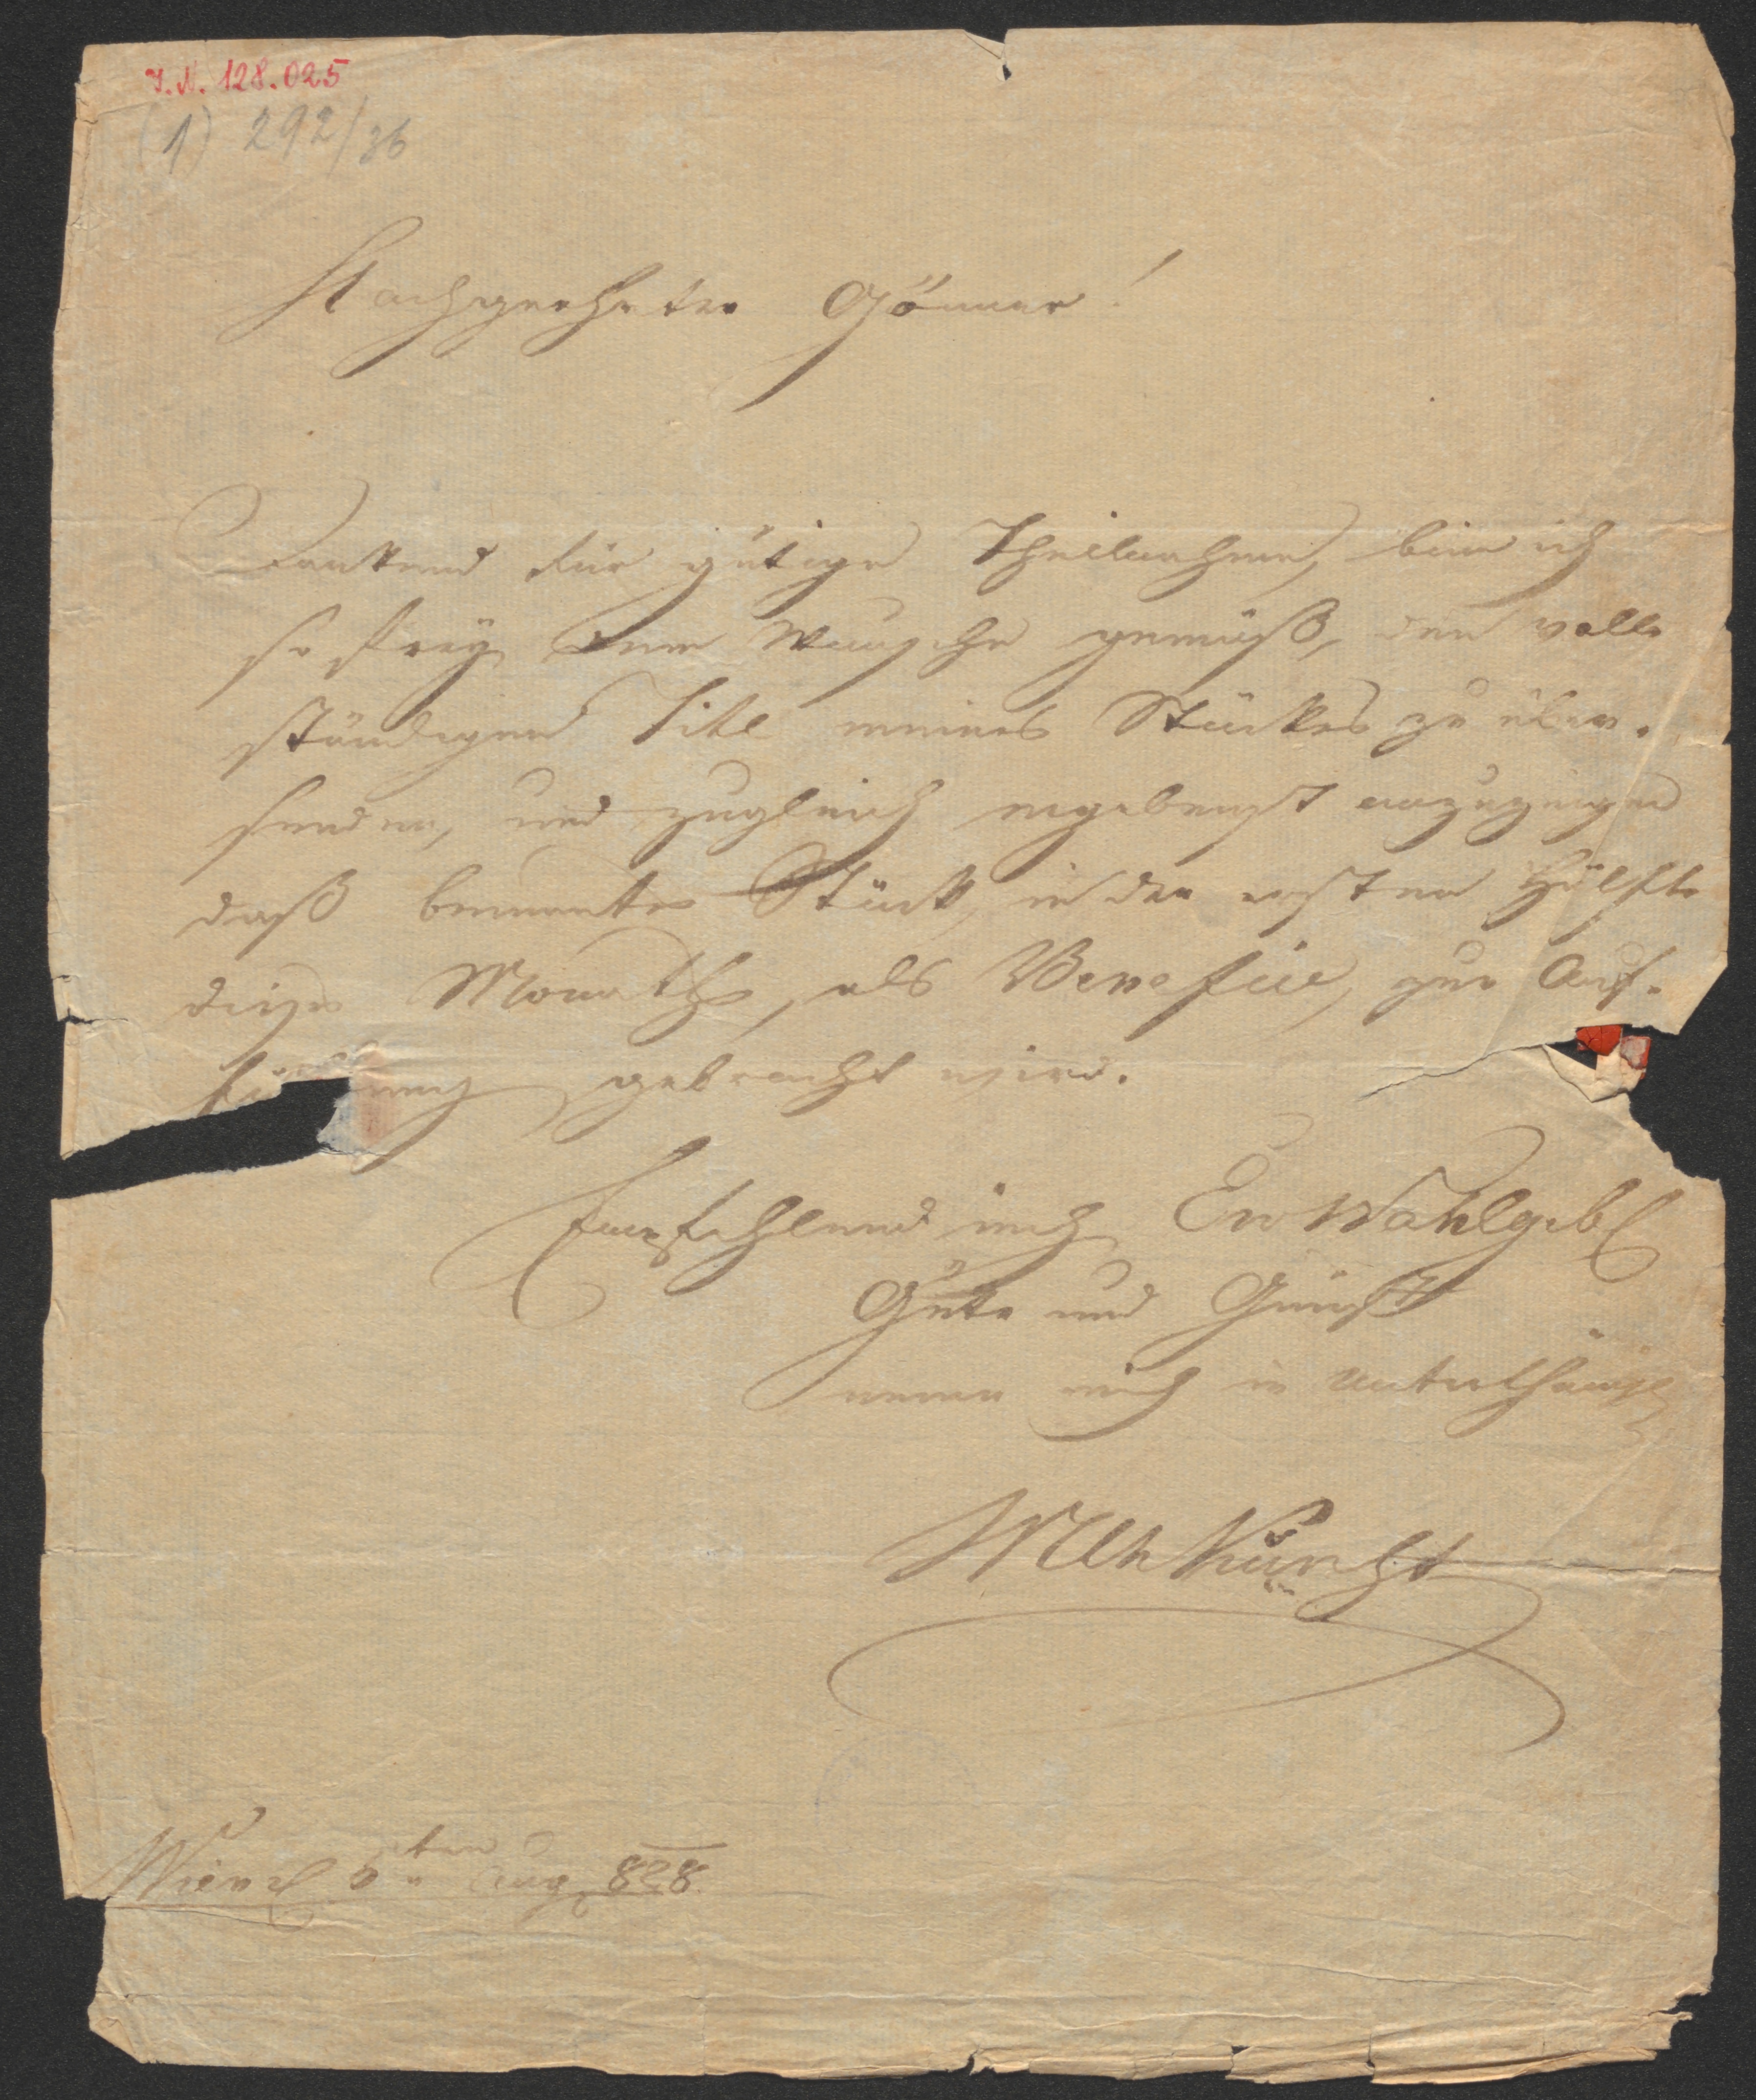 I. N. 128.025
(1) 292/36
Hochgeehrter Gönner!
Dankend für gütige Theilnahme, bin ich
so frey dem Wunsche gemäß, den voll-
ständigen Titl meines Stückes zu über-
senden, und zugleich ergebenst anzuzeigen
daß benanntes Stück, in der ersten Hälfte
dieses Monaths, als Benefice, zur Auf-
gebracht wird.
Empfehlend mich Euer Wohlgeb
Güte und Gunst
nenne mich in
Wien 5ten Aug 828.